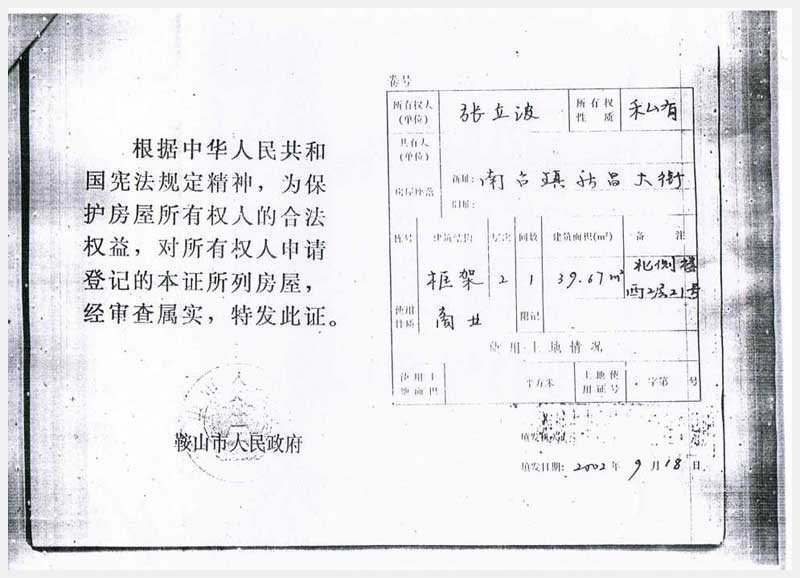 根据中华人民共和
国宪法规定精神，为保
护房屋所有权人的合法
权益，对所有权人申请
登记的本证所列房屋，
经审查属实，特发此证。
鞍山市人民政府
卷号
所有权人(单位) 张立波 所有权性质 私有
共有人(单位)
房屋座落 新址: 南台镇 昌大街
旧址:
栋号 建筑结构 层次 间数 建筑面积(m²) 备注
框架 2 1 39.67m² 北侧楼西2层21号
使用性质 商业 附记
使用土地情况
使用土地面积 平方米 土地使用证号 字第 号
填发
填发日期: 2002年9月18日